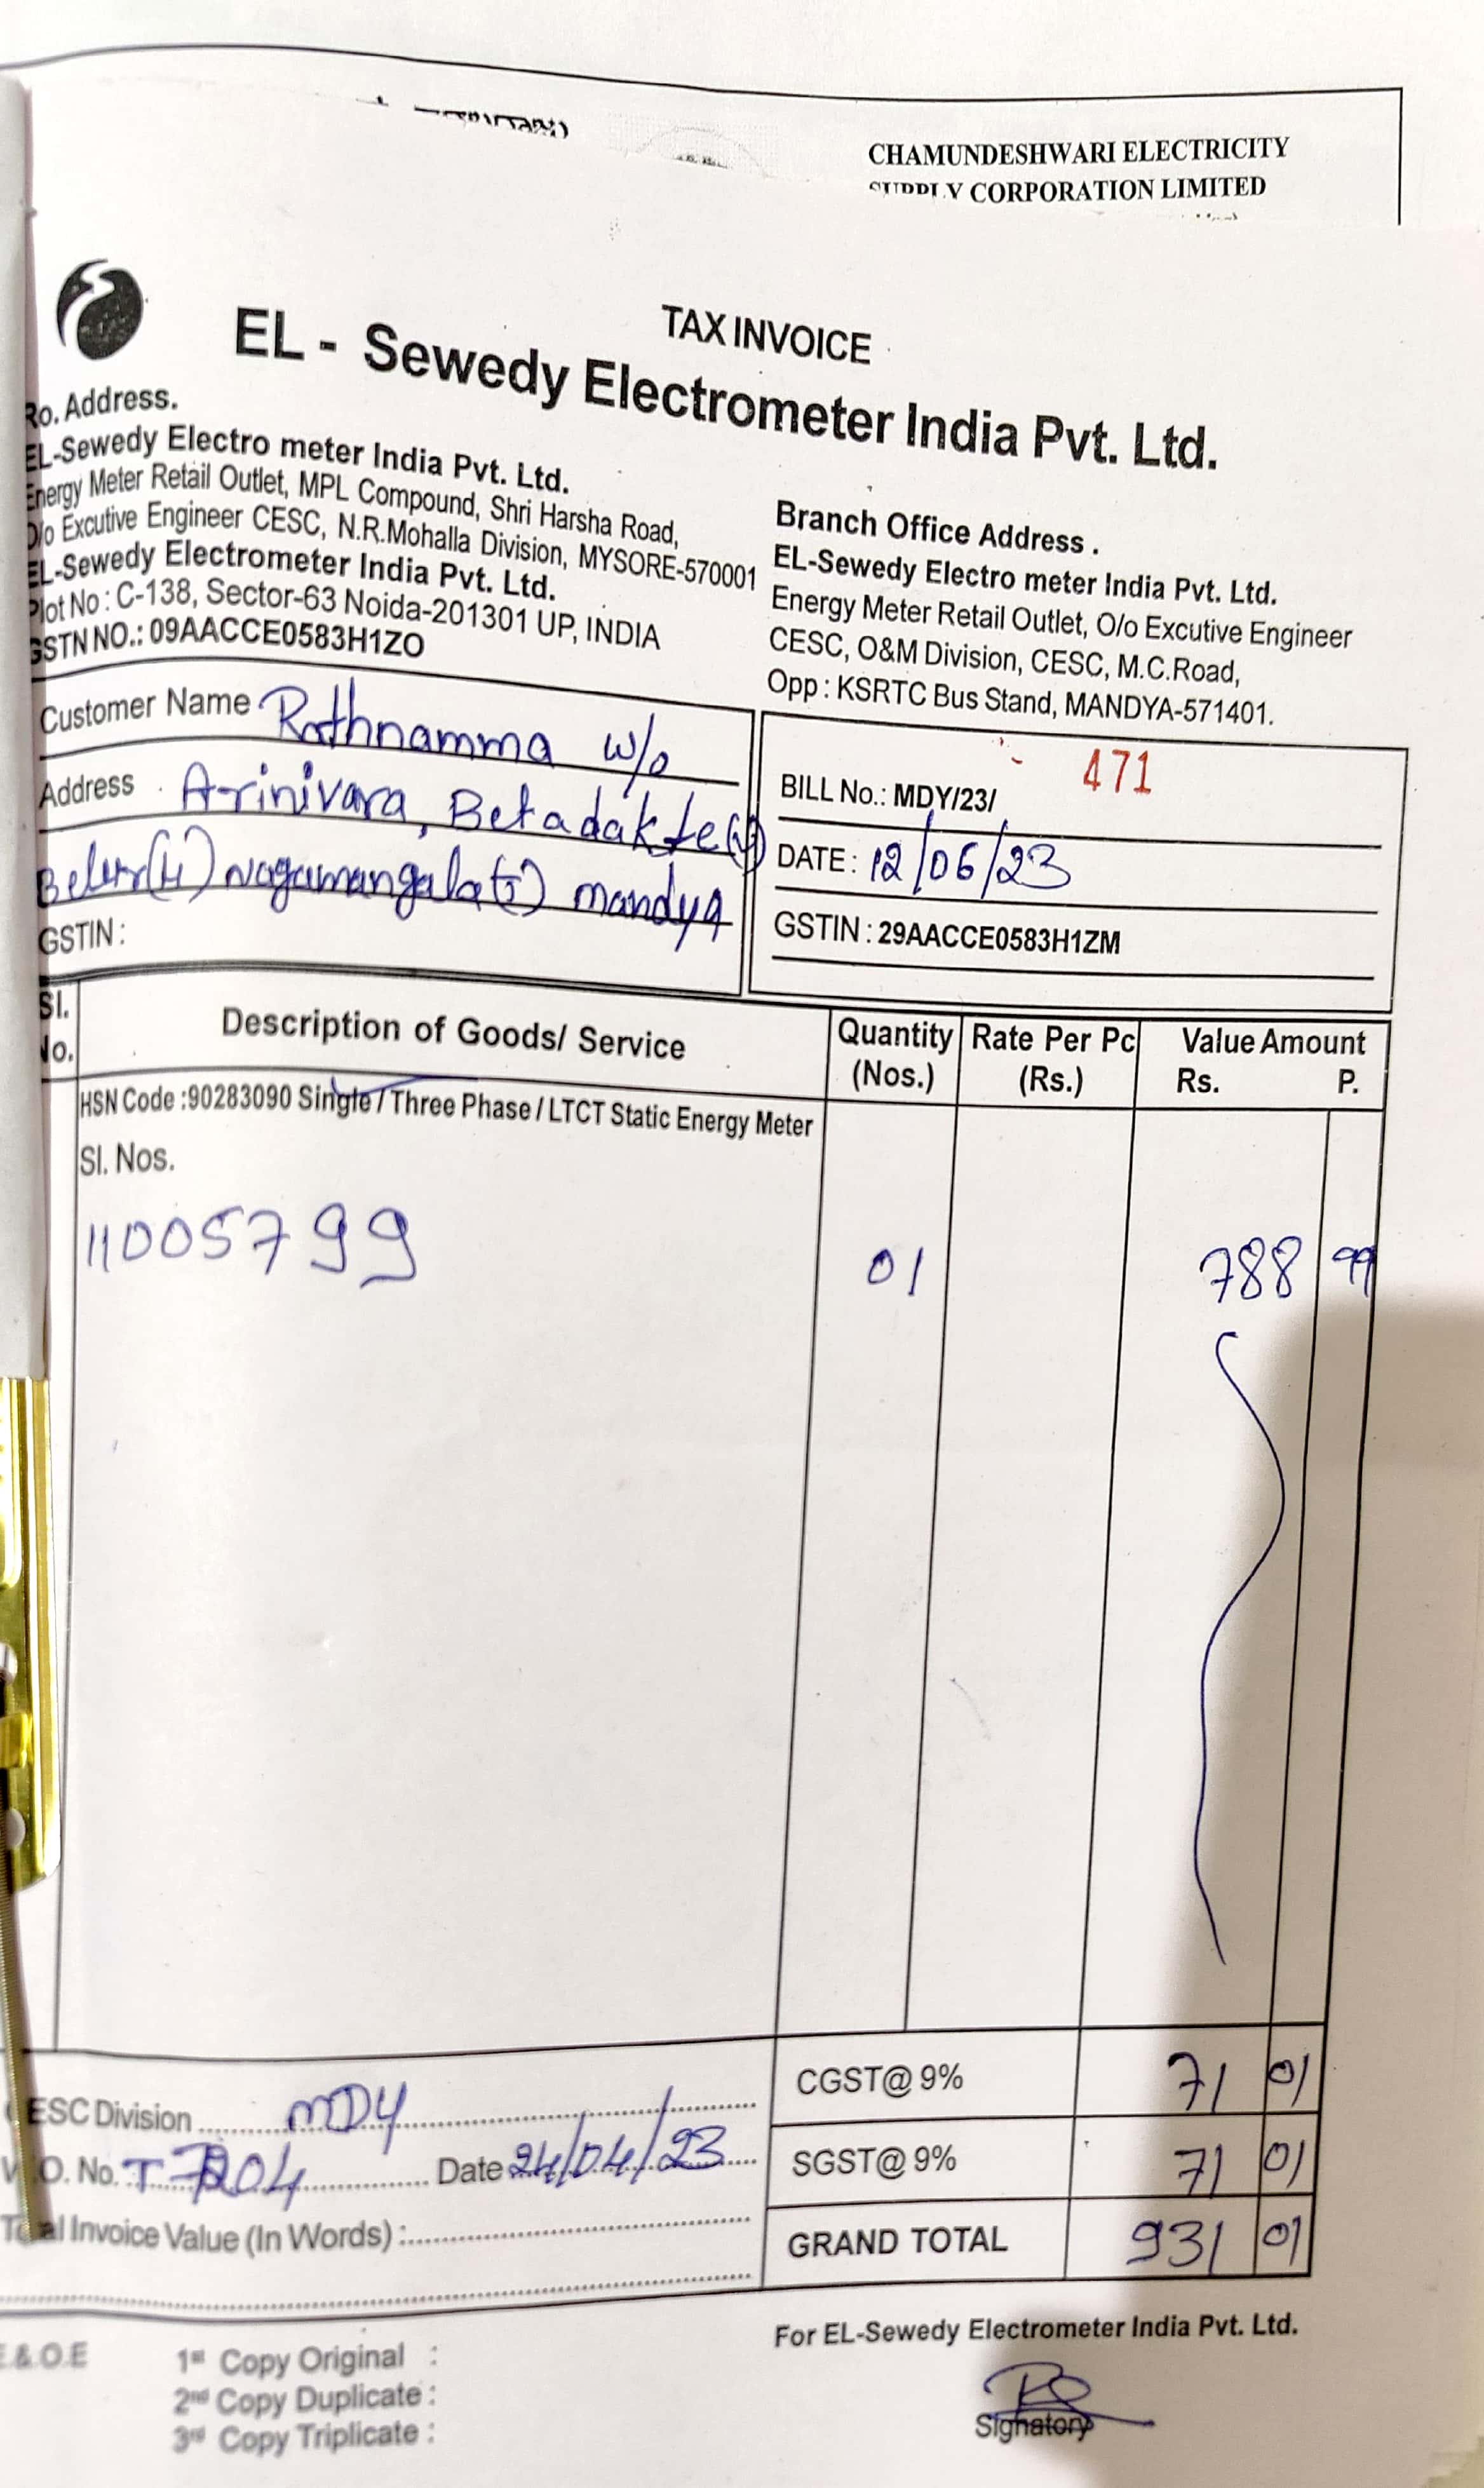 CHAMUNDESHWARI ELECTRICITY
SUPPLY CORPORATION LIMITED
TAX INVOICE
EL - Sewedy Electrometer India Pvt. Ltd.
Ro. Address.
EL-Sewedy Electro meter India Pvt. Ltd.
Energy Meter Retail Outlet, MPL Compound, Shri Harsha Road,
O/o Excutive Engineer CESC, N.R.Mohalla Division, MYSORE-570001
EL-Sewedy Electrometer India Pvt. Ltd.
Plot No : C-138, Sector-63 Noida-201301 UP, INDIA
GSTN NO.: 09AACCE0583H1ZO
Branch Office Address .
EL-Sewedy Electro meter India Pvt. Ltd.
Energy Meter Retail Outlet, O/o Excutive Engineer
CESC, O&M Division, CESC, M.C.Road,
Opp : KSRTC Bus Stand, MANDYA-571401.
Customer Name Rathnamma w/o
Address Arinivara, Betadakte(v)
Belur(H) Nagamangala(T) mandya
GSTIN :
BILL No.: MDY/23/ 471
DATE : 12/06/23
GSTIN : 29AACCE0583H1ZM
Sl. No. Description of Goods/ Service Quantity (Nos.) Rate Per Pc (Rs.) Value Amount Rs. P.
HSN Code :90283090 Single / Three Phase / LTCT Static Energy Meter
Sl. Nos.
11005799 01 788 99
CGST@ 9% 71 01
SGST@ 9% 71 01
GRAND TOTAL 931 01
CESC Division MDY
O. No. Date 24/04/23
Total Invoice Value (In Words) :
For EL-Sewedy Electrometer India Pvt. Ltd.
E.&.O.E
1st Copy Original :
2nd Copy Duplicate :
3rd Copy Triplicate :
Signatory